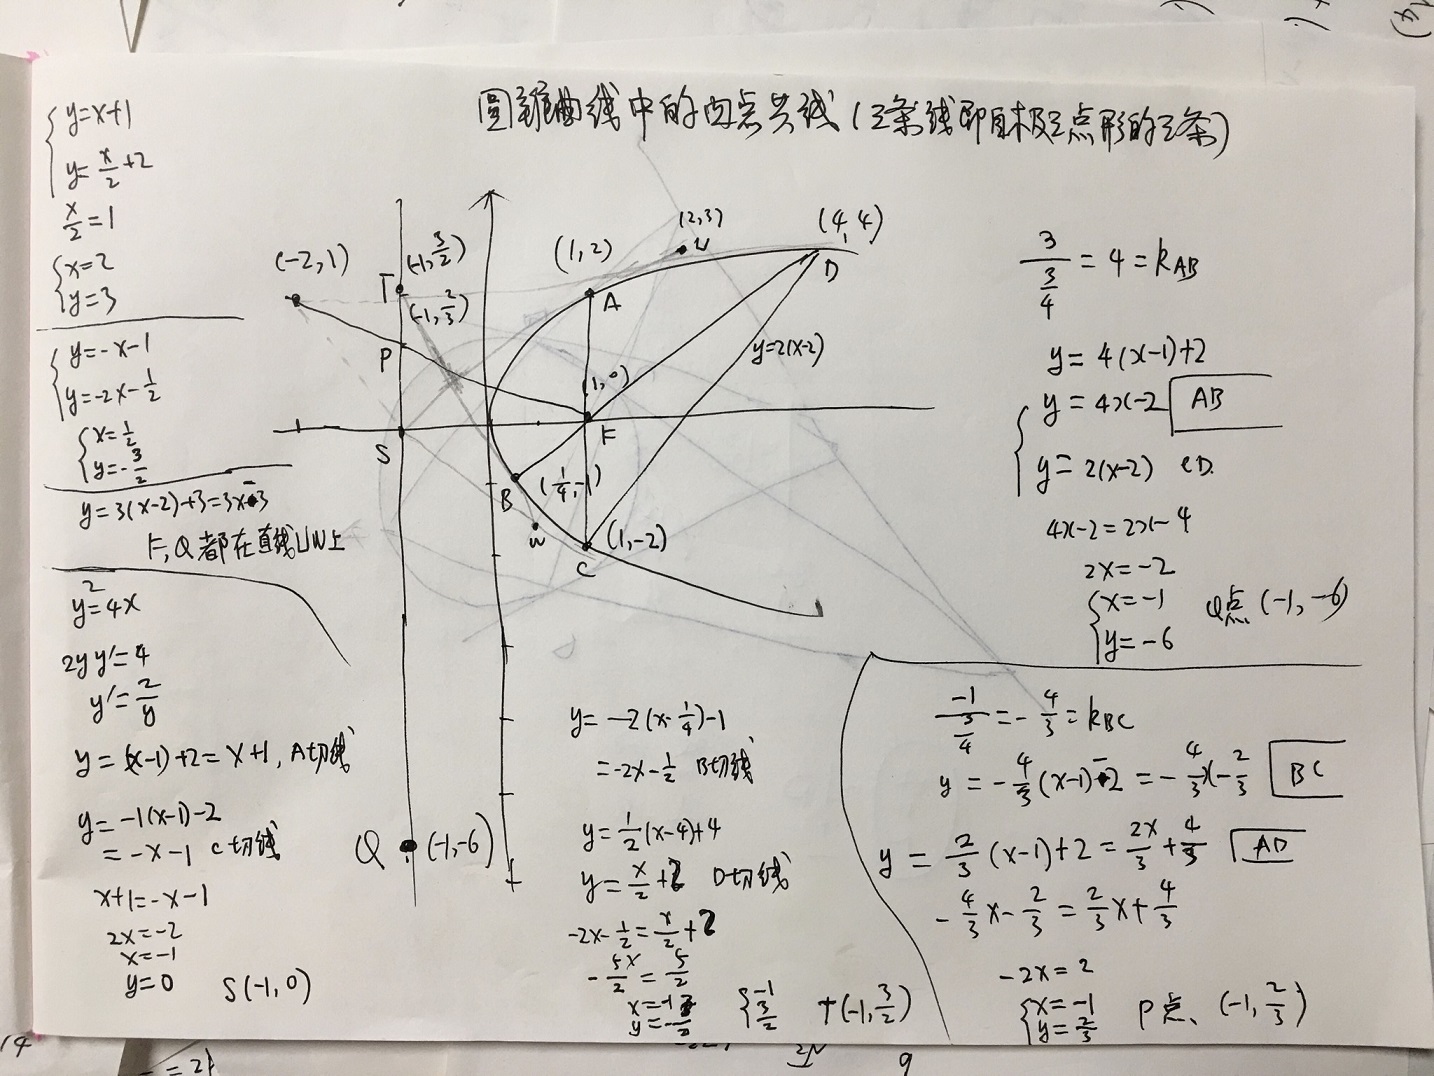 圆锥曲线中的四点共线(三条线即自极三点形的三条)
{y=x+1
y=x/2+2
x/2=1
{x=2
y=3
{y=-x-1
y=-2x-1/2
{x=1/2
y=-3/2
y=3(x-2)+3=3x-3
F,Q都在直线UW上
y²=4x
2yy'=4
y'=2/y
y=(x-1)+2=x+1, A切线
y=-1(x-1)-2
=-x-1 C切线
x+1=-x-1
2x=-2
x=-1
y=0 S(-1,0)
(-2,1)
T (-1,3/2)
(-1,2/3)
P
S
(1,2)
A
(2,3)
U
(4,4)
D
y=2(x-2)
(1,0)
F
B (1/4,-1)
W
(1,-2)
C
Q (-1,-6)
y=-2(x-1/4)-1
=-2x-1/2 B切线
y=1/2(x-4)+4
y=x/2+2 D切线
-2x-1/2=x/2+2
-5x/2=5/2
x=-1
{-1
3/2 T(-1,3/2)
3/(3/4)=4=kAB
y=4(x-1)+2
{y=4x-2 AB
y=2(x-2) CD.
4x-2=2x-4
2x=-2
{x=-1
y=-6
Q点(-1,-6)
-1/(3/4)=-4/3=kBC
y=-4/3(x-1)-2=-4/3x-2/3 BC
y=2/3(x-1)+2=2x/3+4/3 AD
-4/3x-2/3=2/3x+4/3
-2x=2
{x=-1
y=2/3
P点、(-1,2/3)
14
=21
9